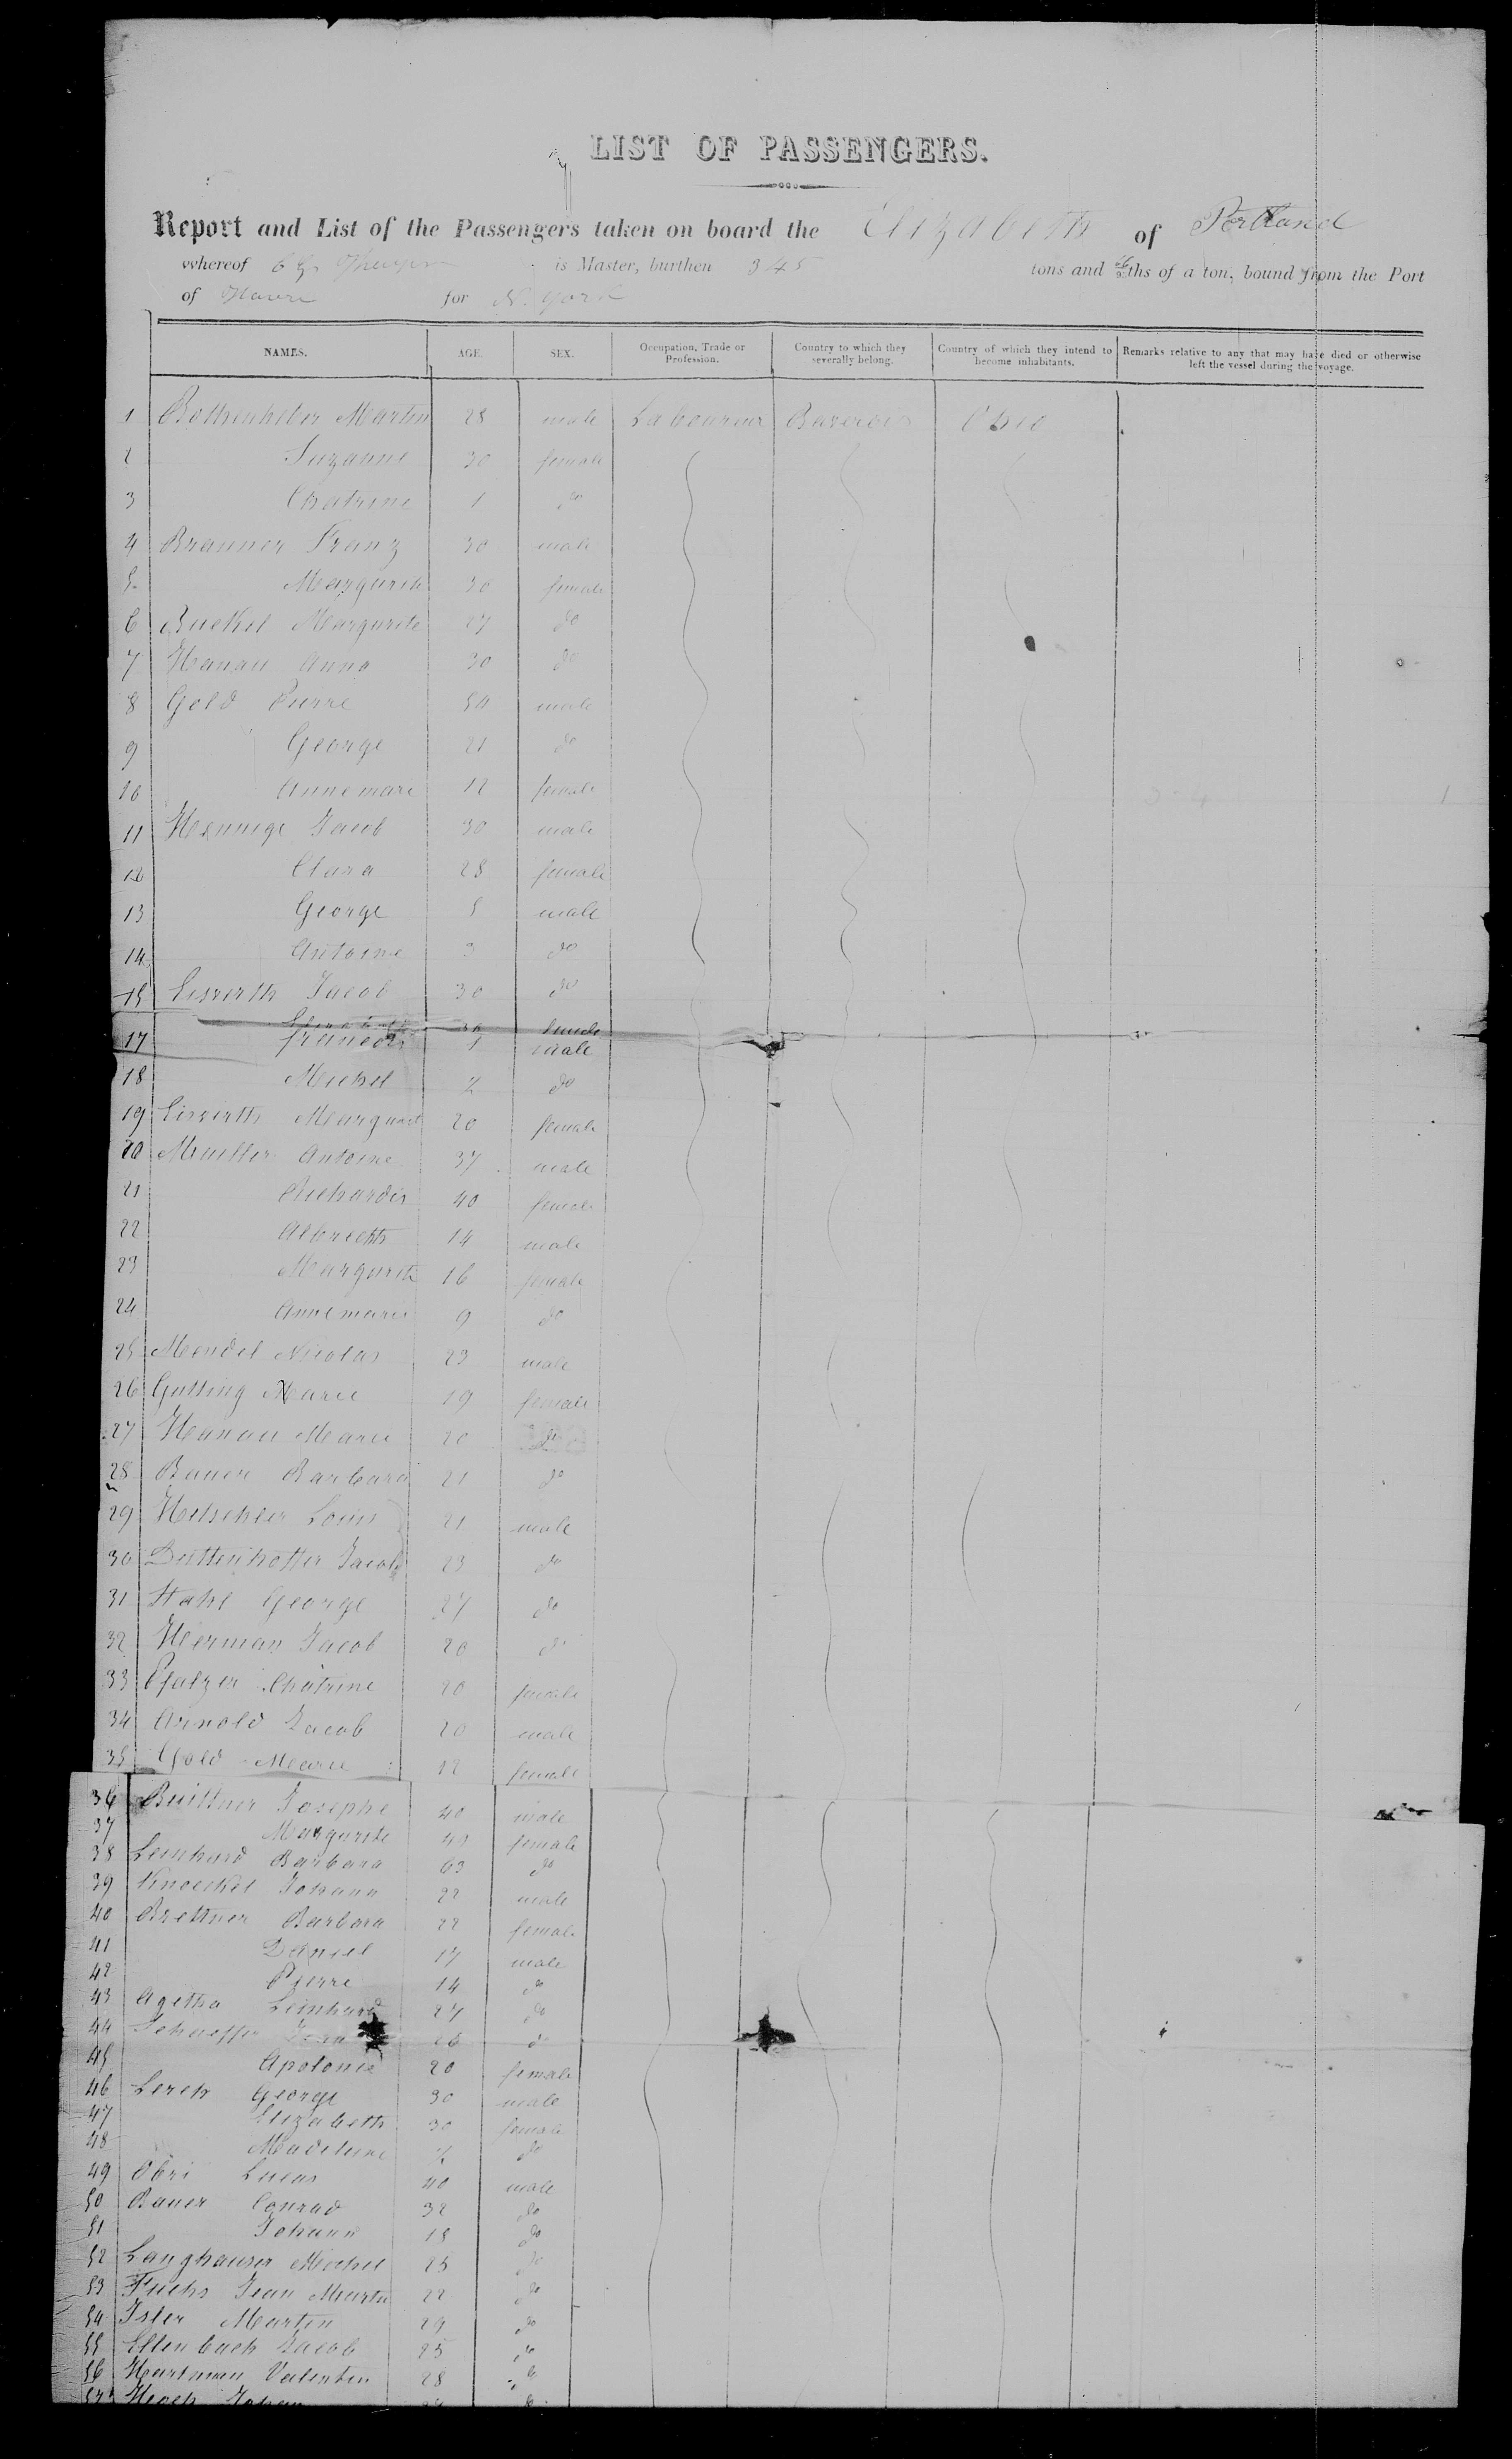 LIST OF PASSENGERS.
Report and List of the Passengers taken on board the Elizabeth of Portland
whereof is Master, burthen 345 tons and ths of a ton, bound from the Port
of Havre for N. York
NAMES. AGE. SEX. Occupation, Trade or Profession. Country to which they severally belong. Country of which they intend to become inhabitants. Remarks relative to any that may have died or otherwise left the vessel during the voyage.
1 Martin 28 male Laboureur Baverois Ohio
2 Suzanne 30 female
3 Chatrine 1 do
4 Branner Franz 30 male
5 Margurite 30 female
6 Buckel Margurite 27 do
7 Hanau Anna 30 do
8 Gold Pierre 54 male
9 George 21 do
10 Annemari 12 female
11 Hennige Jacob 30 male
12 Clara 28 female
13 George 5 male
14 Antoine 3 do
15 Jacob 30 do
30 female
17 francois 1 male
18 Michel do
19 20 female
20 Mueller Antoine 37 male
21 Richardis 40 female
22 Albrecht 14 male
23 Margurite 16 female
24 Annemarie 9 do
25 Mendel Nicolas 23 male
26 Gutting Marie 19 female
27 Hanau Marie 20 do
28 Bauer Barbara 21 do
29 Louis 21 male
30 Duttenhoffer Jacob 23 do
31 Stahl George 27 do
32 Herman Jacob 20 do
33 Pfalzer Chatrine 20 female
34 Arnold Jacob 20 male
35 Gold Marie 12 female
36 Josephe 40 male
37 Margurite female
38 Leinhard Barbara 63 do
39 Knoeckel Johann 22 male
40 Brettner Barbara 22 female
41 Daniel 17 male
42 Pierre 14 do
43 Agetha Leinhard 27 do
44 Schaeffer Jean 26 do
45 Apolonie 20 female
46 Lerch George 30 male
47 Elizabeth 30 female
48 Madeleine do
49 Obri Lucas 40 male
50 Bauer Conrad 32 do
51 Johann 18 do
52 Langhauser Michel 25 do
53 Fuchs Jean Martin 22 do
54 Isler Martin 29 do
55 Ellenbach Jacob 25 do
56 Hartmann Valentin 28 do
57 Johan